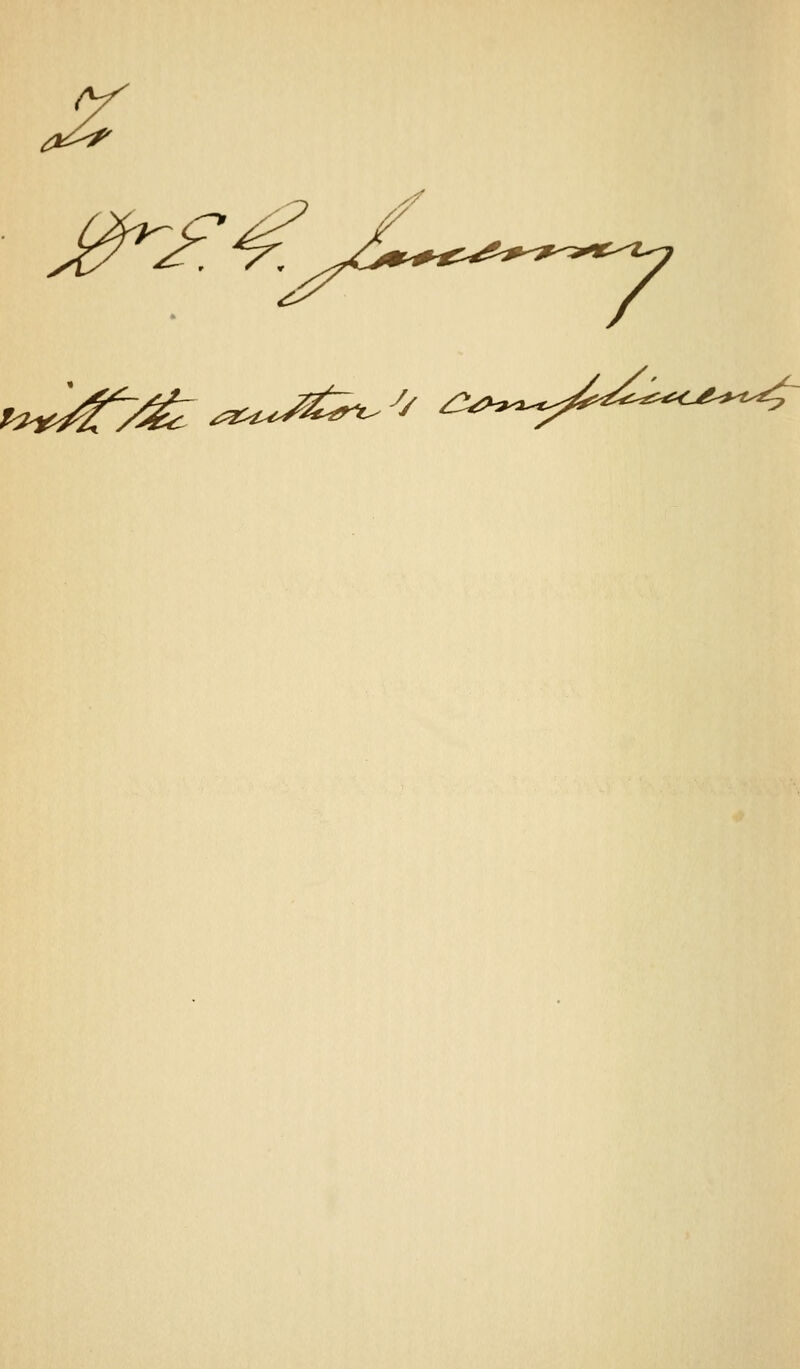 Dr E. G. Janeway
with the author's compliments